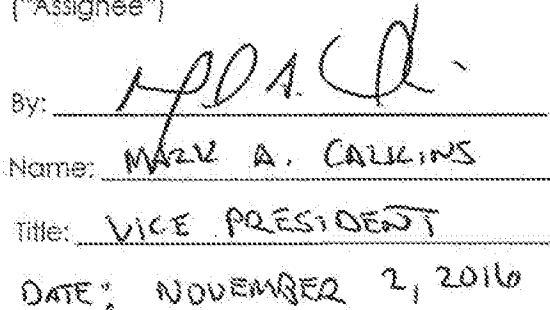 ("Assignee")
By:
Name: MARK A. CALKINS
Title: VICE PRESIDENT
DATE: NOVEMBER 2, 2016